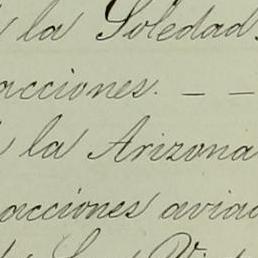 la Soledad
acciones. — —
la Arizona
acciones aviad